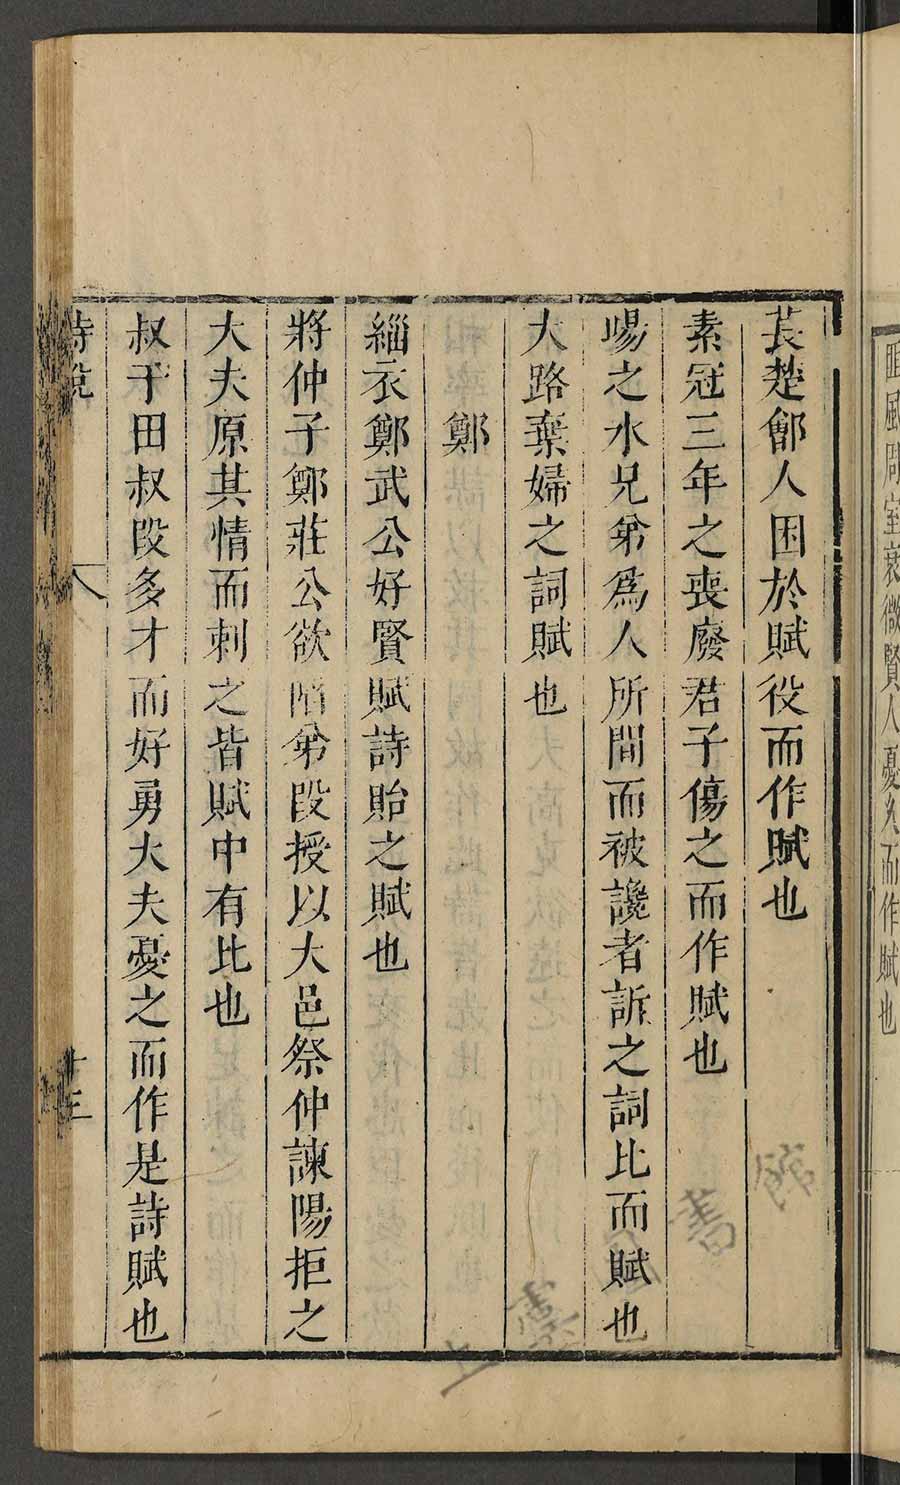 匪風周室衰微賢人憂之而作賦也
萇楚鄶人困於賦役而作賦也
素冠三年之喪廢君子傷之而作賦也
暘之水兄弟為人所間而被讒者訴之詞比而賦也
大路棄婦之詞賦也
鄭
緇衣鄭武公好賢賦詩貽之賦也
將仲子鄭莊公欲陷弟段授以大邑祭仲諫陽拒之
大夫原其情而刺之皆賦中有比也
叔于田叔段多才而好勇大夫憂之而作是詩賦也
詩說
十三